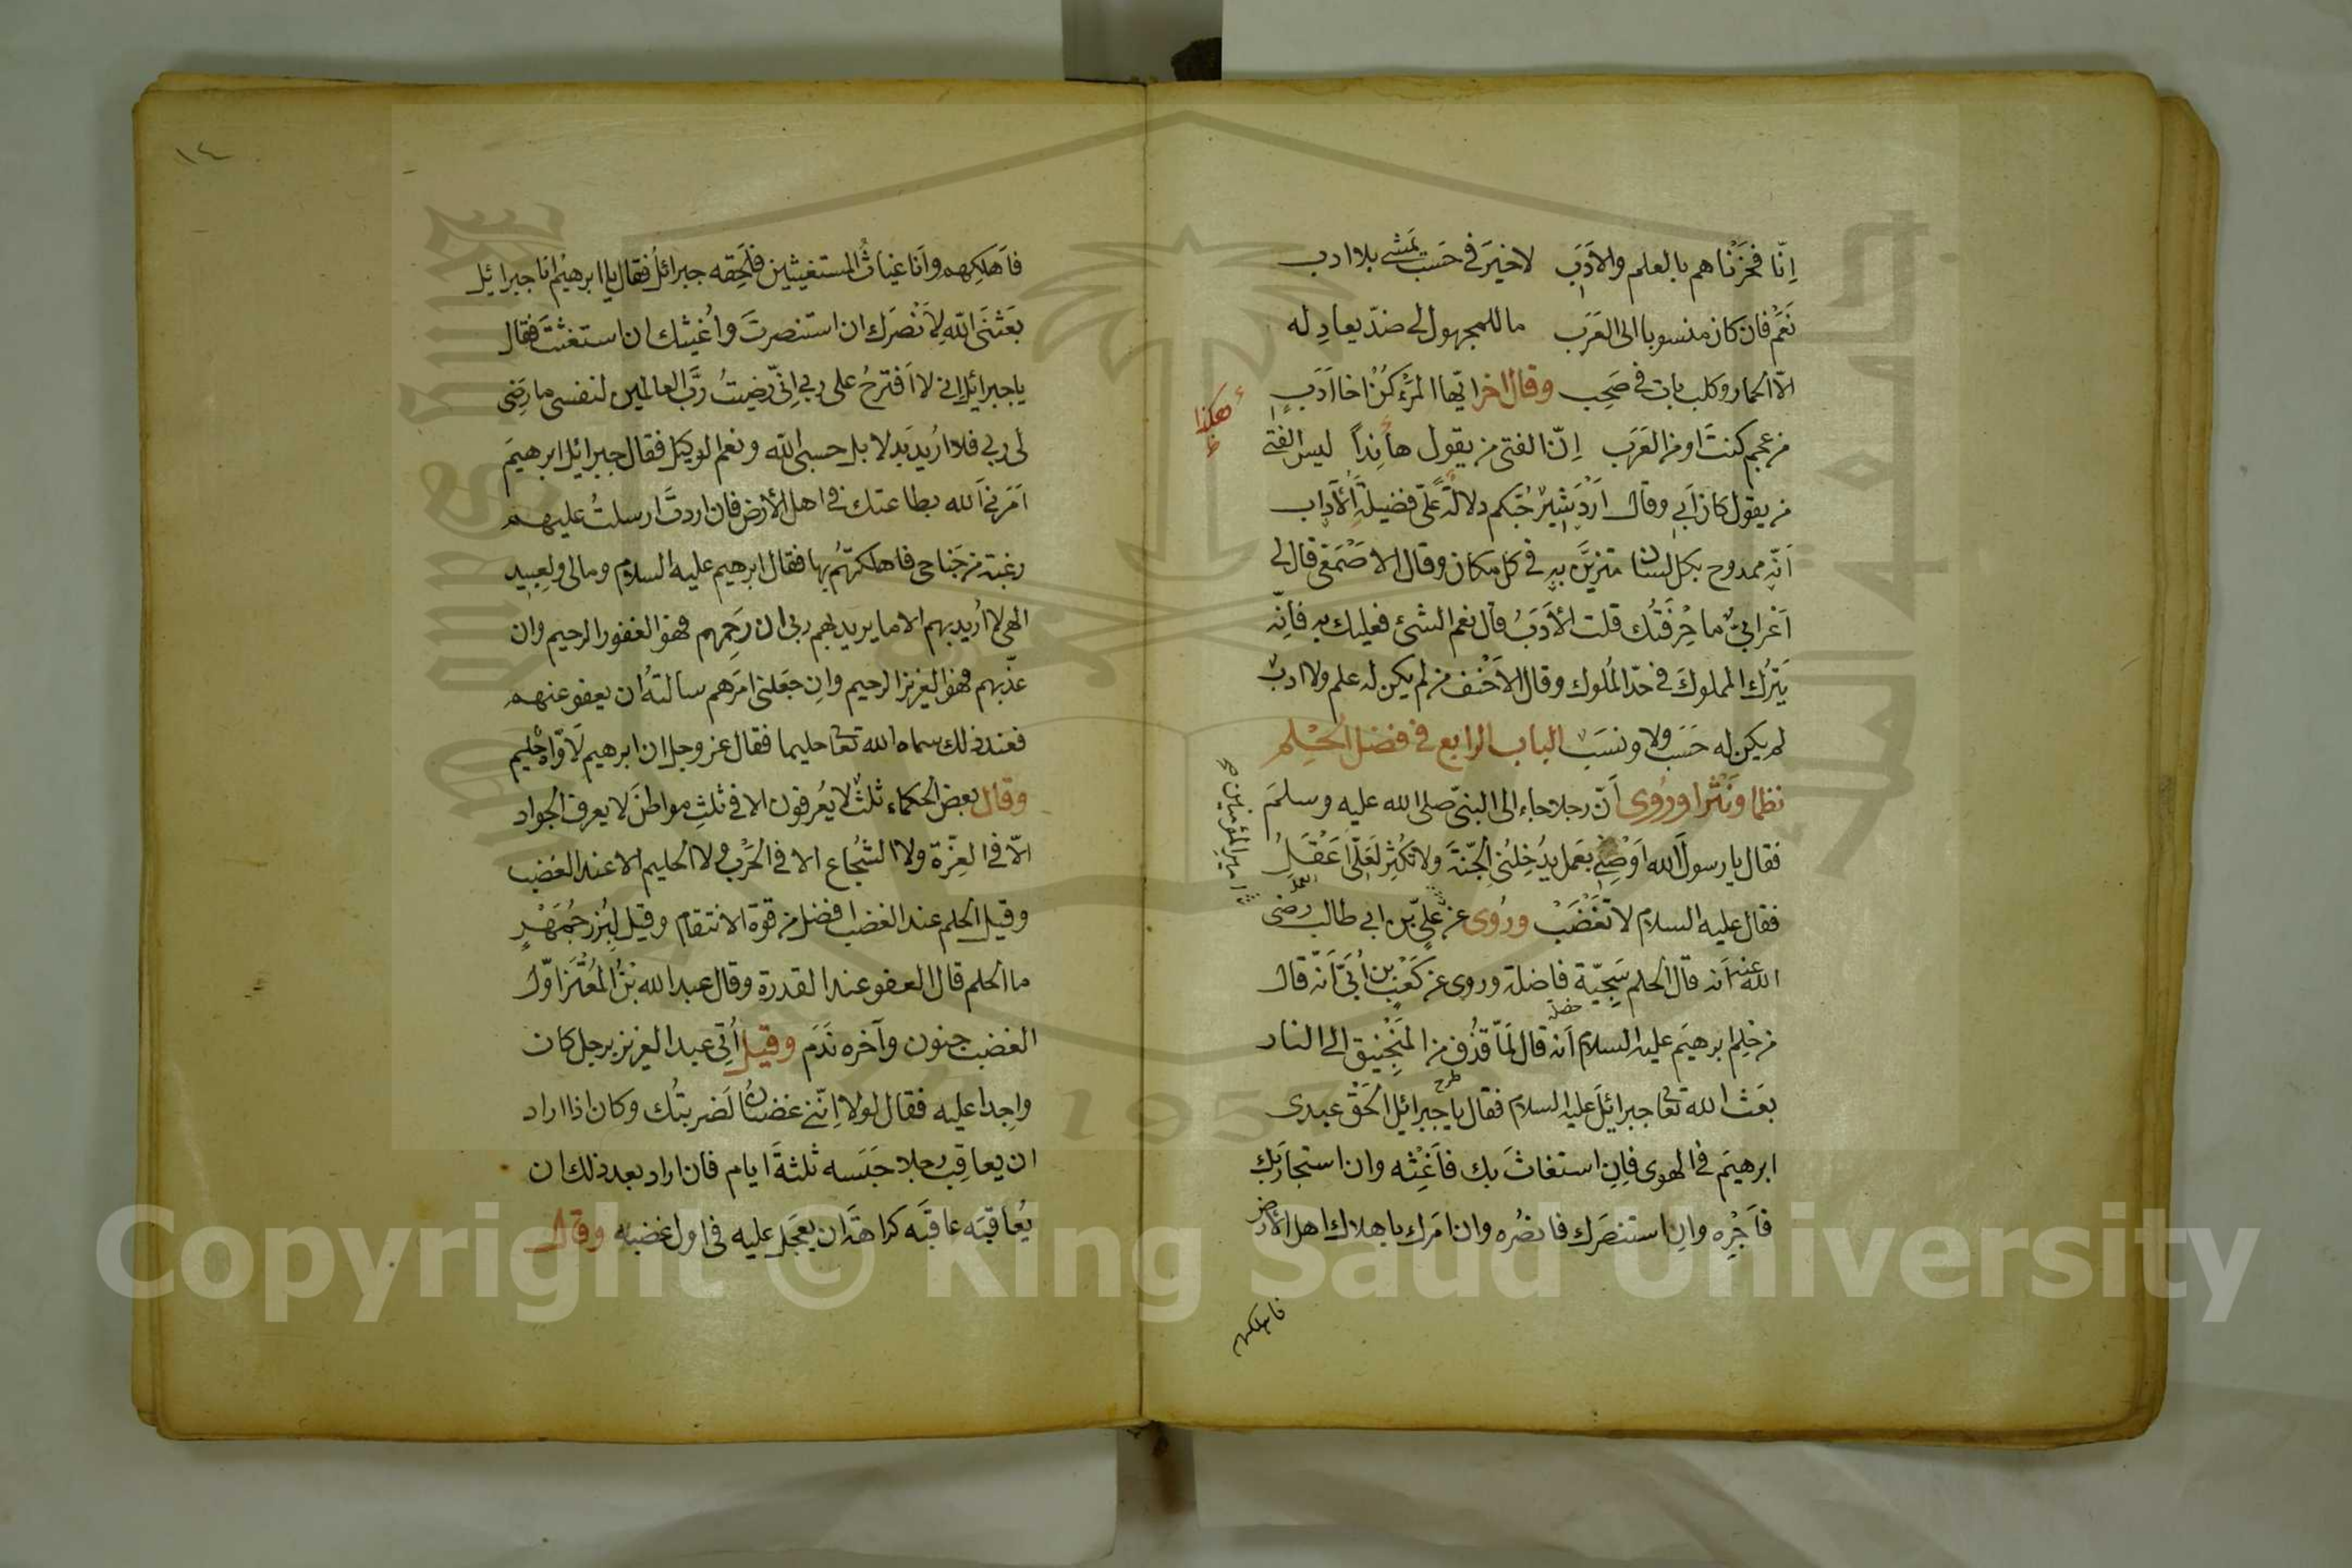 إنّا فخرناهم بالعلم والأدَبِ لا خيرَ في حَسَب تمشي بلا ادب
نَعَم فان كان منسوبا الى العَرَب ما للمجهول لى ضدّ يعادِ له
الّا الحمار وكلب بات في صَخِب وقال اخر ايّها المرْءُ كُنْ اخا اَدَبٍ
من عجم كنتَ او من العَرَب اِنّ الفتى من يقول ها نذاً ليس الفتى
من يقول كان اَبي وقال اَرْدَشِيْر حُبّكم دلالةً على فضيلة الآداب
اَنّه ممدوح بكل لسان متزيَّن به في كل مكان وقال الاصْمَعى قال لى
اَعْرابىٌّ ما حِرْفَتُك قلت الأدَبُ قال نعم الشئ فعليك به فانّه
يَترُك المملوكَ في حدّ المُلوك وقال الاَحْنف من لم يكن له علم ولا ادبٌ
لم يكن له حَسَب ولا ونسَب الباب الرابع في فضل الحِلْم
نظما ونَثْرا ورُوى اَنّ رجلا جاء الى النبىّ صلى الله عليه وسلمَ
فقال يا رسولَ الله اَوْصِنى بعَمل يدُخِلنى الجّنةَ ولا تكُثِر لعَلّى اَعْقِل
فقال عليه السلام لا تَغْضَبْ ورُوى عن علىّ بن ابي طالب رضى
الله عنه اَنه قال الحلم سَجيّة فاضلة وروى عن كَعْب بن اُبَىّ اَنّه قال
من حِلم ابرهيَم عليه السلام اَنه قال لمَّا قُذِف من المَنجْنِيق الى النار
بعَث الله تعا جبرائيلَ عليه السلام فقال يا جبرائيل اَلحَقْ عبدى
ابرهيَم في الهوى فاِنِ استغاثَ بك فاَغِثْه وان استجار بك
فاَجِرْه وانِ استنصَرك فانصُره وان امَرك باهلاك اهل الأرض
فاهلكهم
هكذا
امير المؤمنين صح
خصلة
طرح
١٤
فاَهلِكهم واَنا غياثُ المستغيثين فلَحِقه جبرائلُ فقال يا ابرهيمُ انا جبرائيل
بَعَثنىَ الله لاَنْصُرَك ان استنصرتَ واُغيثك ان استغثتَ فقال
يا جبرائيل انى لا اَقترحُ على ربى اِنىّ رَضيتُ ربَّ العالمين لنفسى ما رَضِى
لى ربى فلا اُريدَ بَدلا بل حسبى الله ونعم الوكيل فقال جبرائيل ابرهيمَ
اَمَرنى الله بطاعتك في اهل الأرض فان اردتَّ ارسلتُ عليهم
من جَناحى فاهلكتهُم بها فقال ابرهيم عليه السلام ومالى ولِعبيد
الهى لا اُريد بهم الا ما يريد بهم ربى ان رَحِمهم فهو الغفور الرحيم وان
عذّبهم فهو العزيز الرحيم وانِ جعَلنى امرَهم سالتهُ ان يعفو عنهم
فعند ذلك سماه الله تعا حليما فقال عز وجل ان ابرهيم لَاَوّاهٌ حَليم
وقال بعض الحكماء ثلثٌ لا يُعرفون الا في ثلثِ مواطنَ لا يعرف الجواد
الّا في العِزّة ولا الشُجاع الا في الحَرْب ولا الحليم الا عند الغضب
وقيل الحلم عند الغضب افضل من قوة الانتقام وقيل لِبُزرْجُمَهْرٍ
ما الحلم قال العفو عند القدرة وقال عبد الله بنُ المُعْتَز اوّل
الغضب جنون وآخره نَدَم وقيل اُتِى عبد العزيز برجل كان
واجِدا عليه فقال لولا اِنّنى غضبانُ لَضربتُك وكان اذا اراد
ان يعاقِب رجلا حَبَسه ثلثةَ ايام فان اراد بعد ذلك ان
يُعاقبَه عاقبَه كراهةَ ان يعجَل عليه في اول غضبه وقال
Copyright © King Saud University
1957